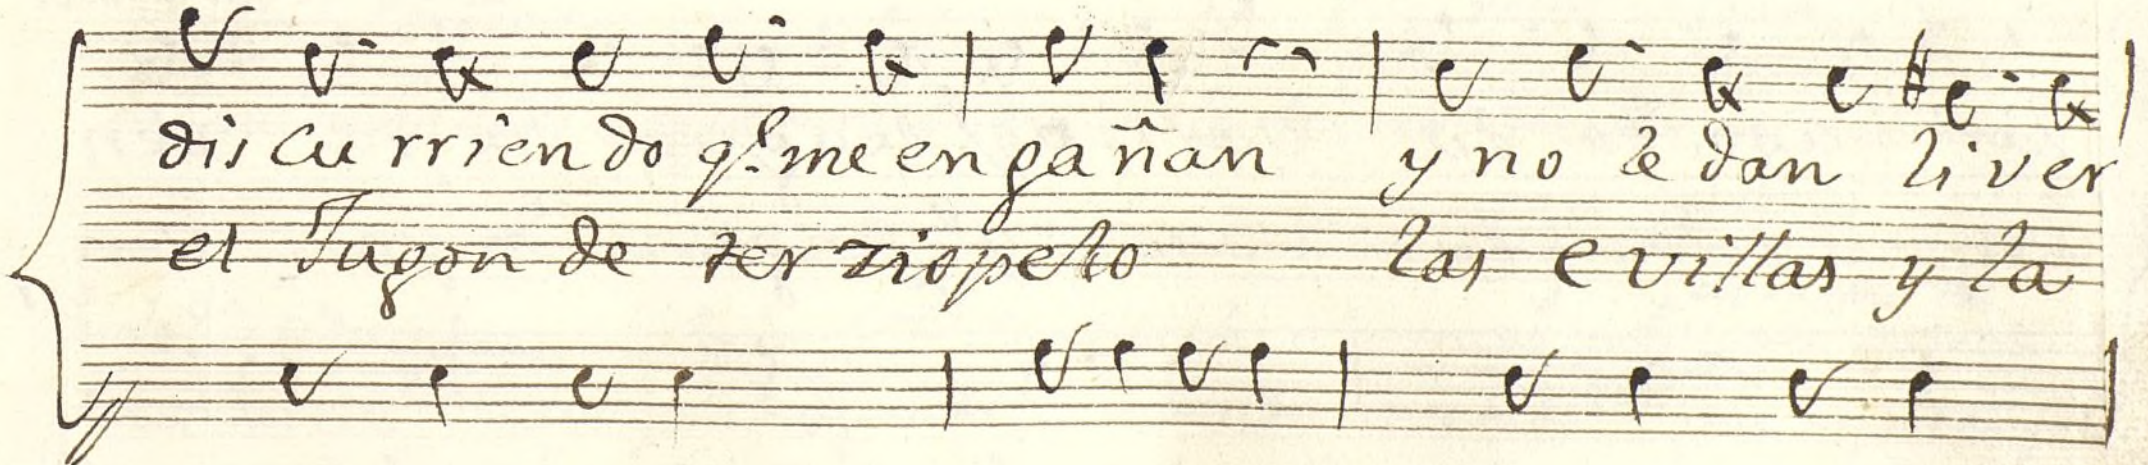 dis cu rrien do q.e me en ga ñan y no le dan li ver
el Jugon de ter ziopelo las evillas y la